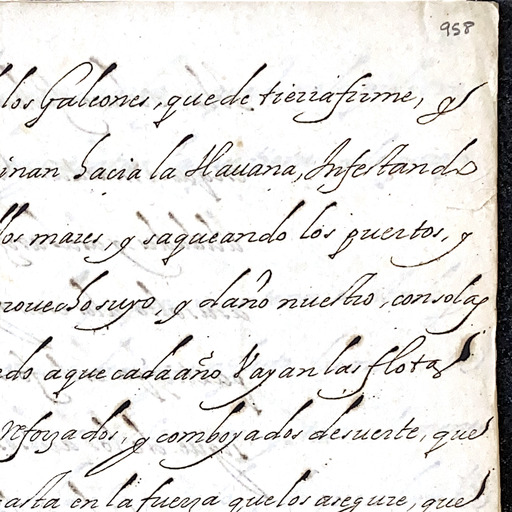 958
los Galeones, que de tierra firme, y
inan hacia la Hauana, Infestando
los mares, y saqueando los puertos, y
rouecho suyo, y daño nuestro, con sola
edo a que cada año Vayan las flotas
Reforzados, y comboyados de suerte, que
asta en la fuerza que los asegure, que